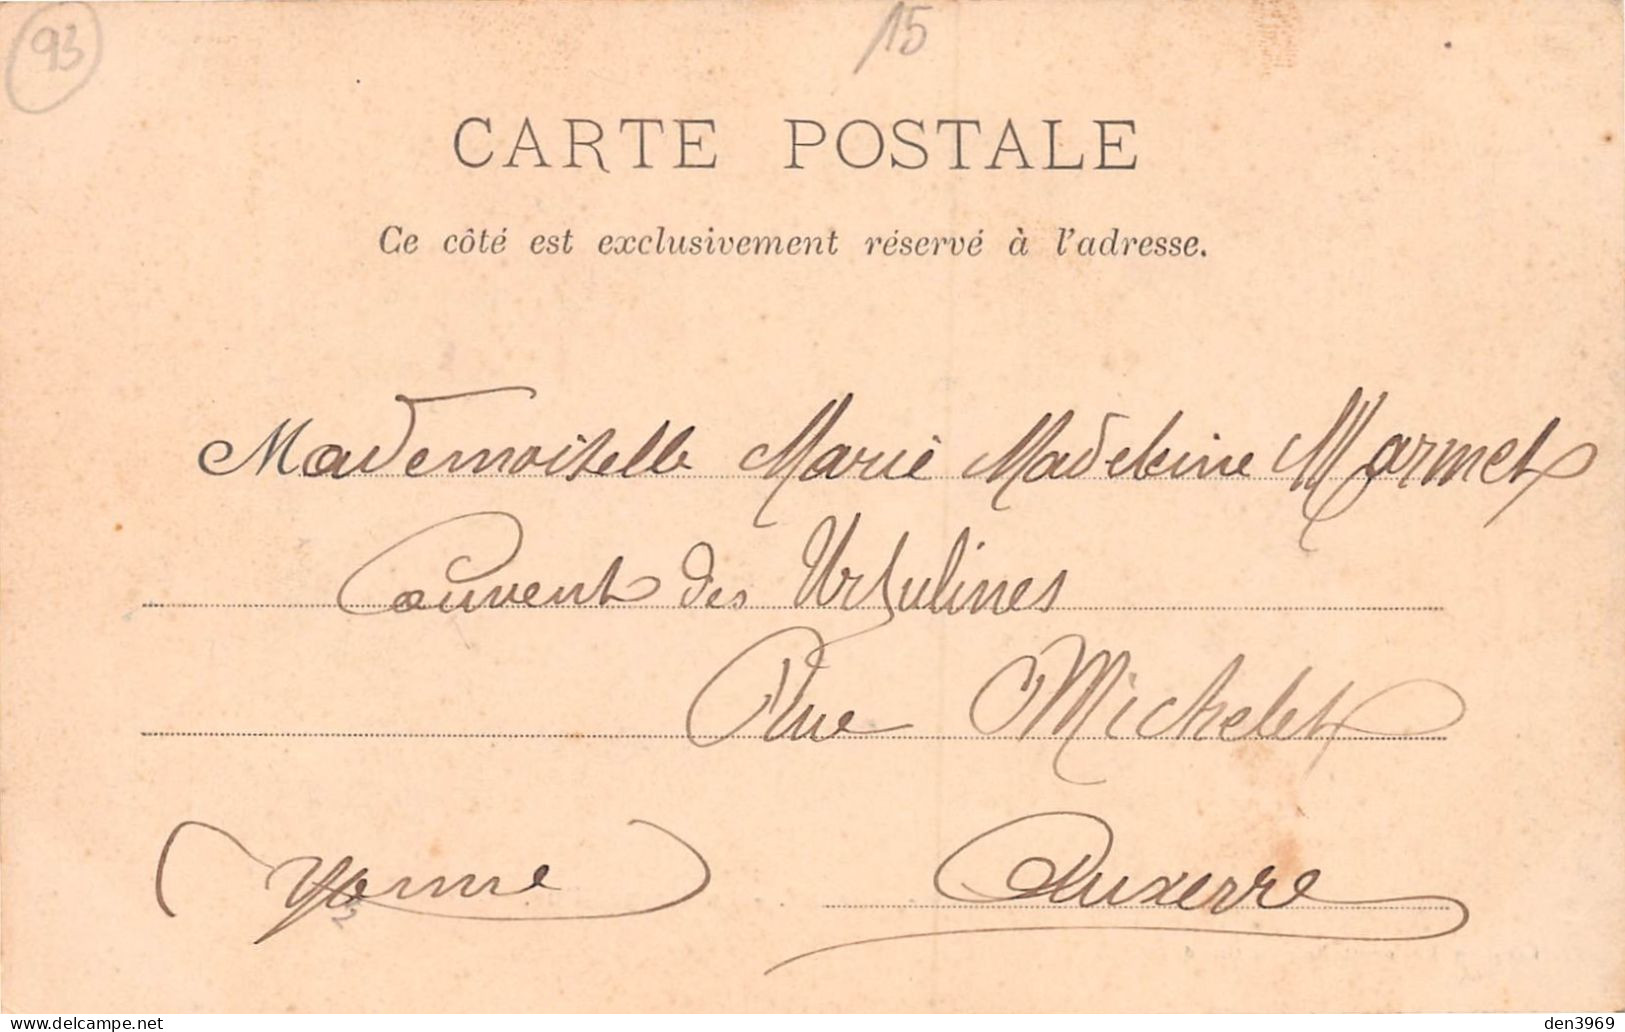 93
15
CARTE POSTALE
Ce côté est exclusivement réservé à l'adresse.
Mademoiselle Marie Madeleine Marmet
Couvent des Ursulines
Rue Michelet
(Yonne) Auxerre
www.delcampe.net
den3969